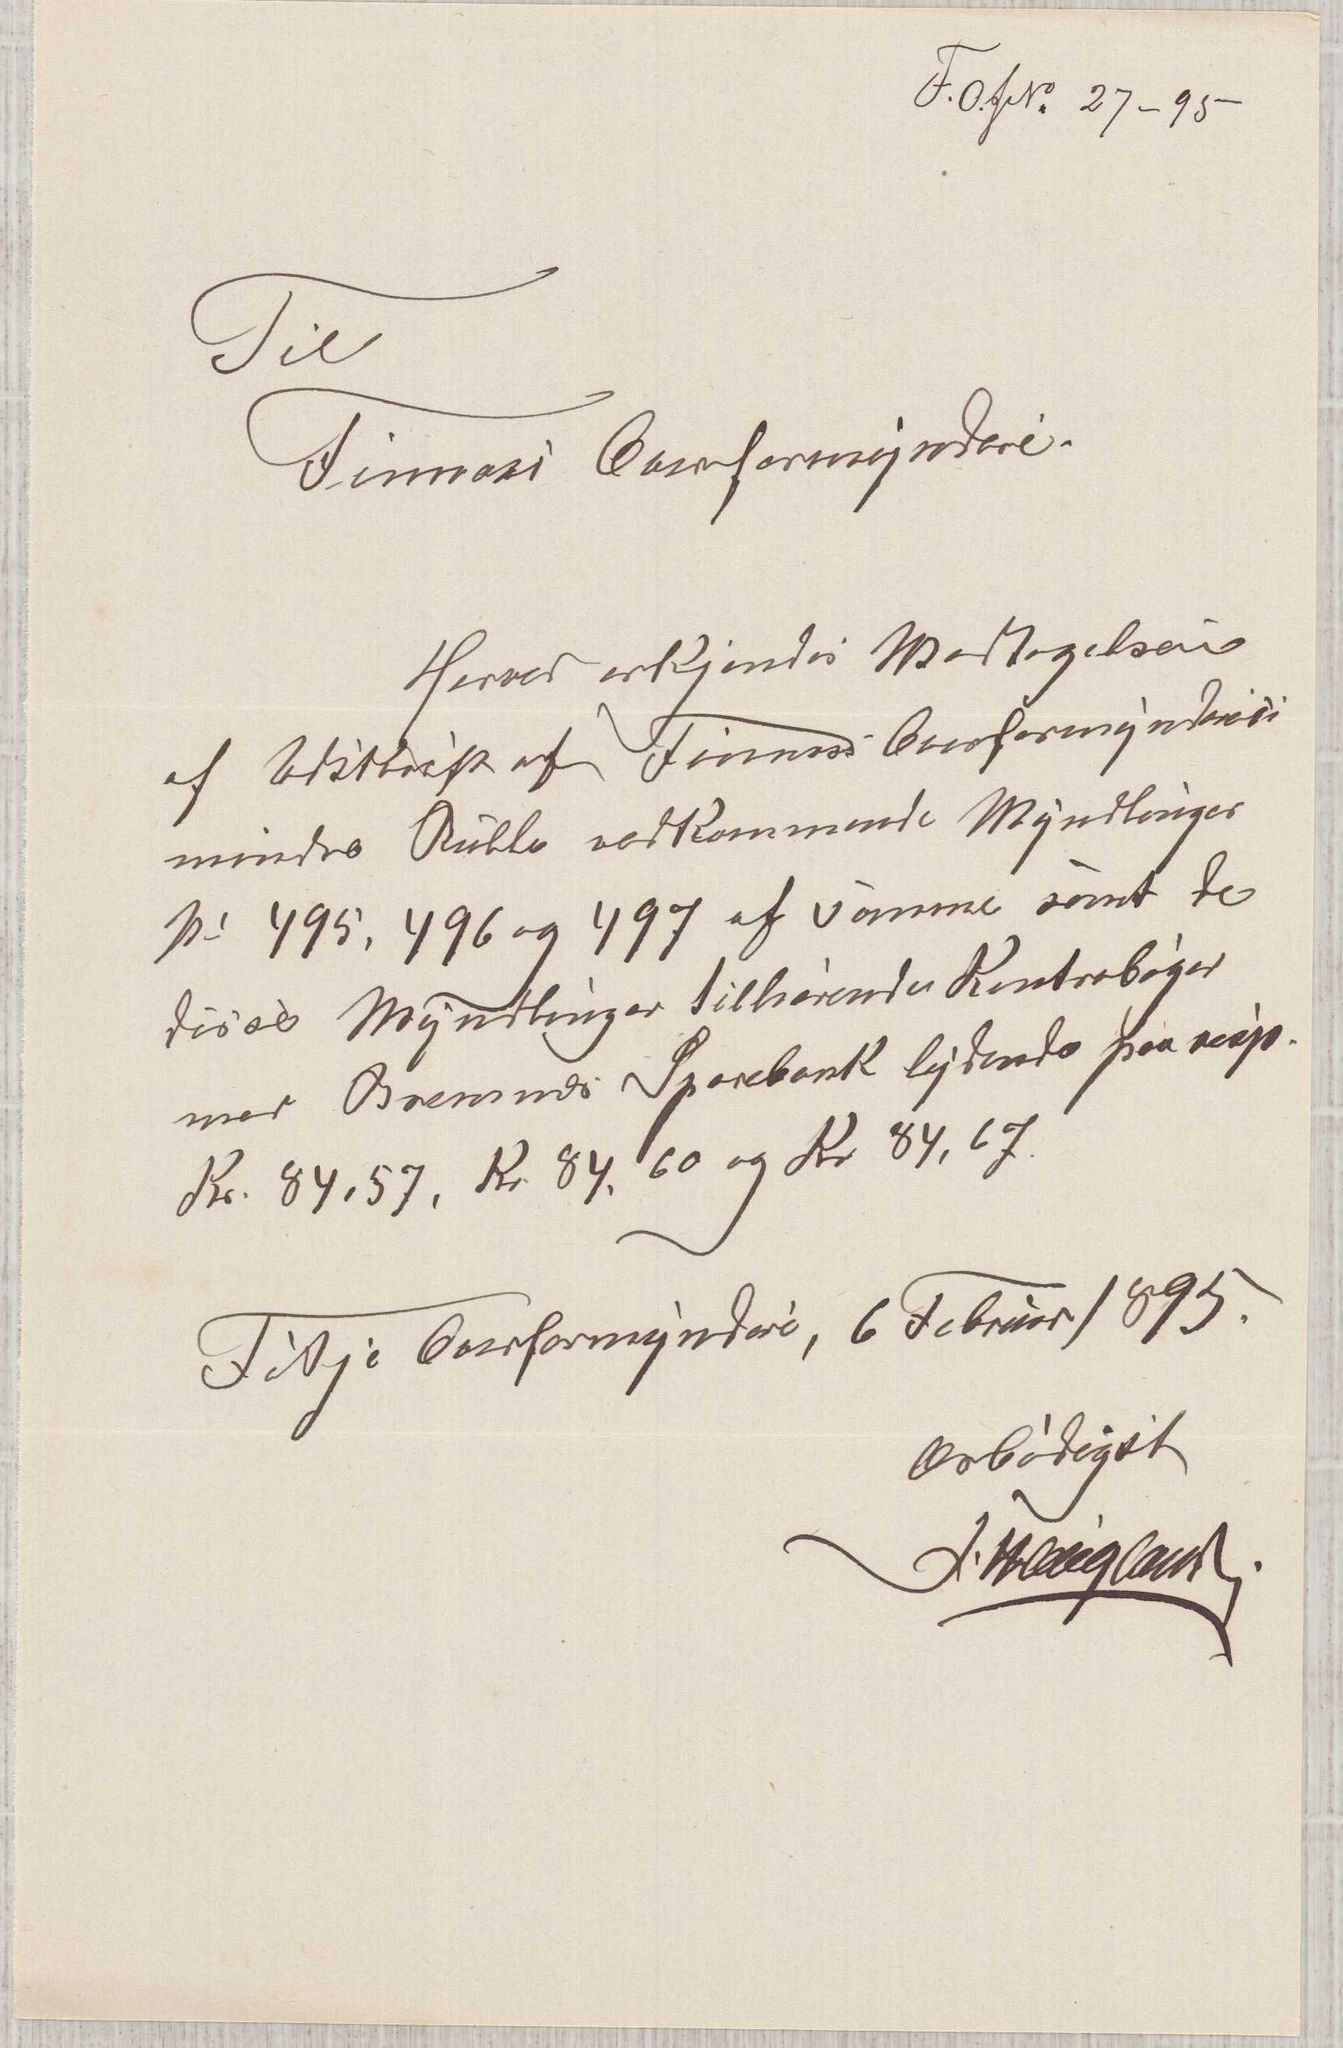 F.O.J.No. 27-95
Til
Finnaas Overformynderi.
Herved erkjendes Modtagelsen
af Udskrift af Finnaas Overformynderis
mindre Rulle vedkommende Myndlinger
No 495, 496 og 497 af samme samt de
disse Myndlinger tilhørende Kontrabøger
med Bremnes Sparebank lydende paa resp.
Kr. 84,57, Kr. 84,60 og Kr 84,67.
Fitje Overformynderi, 6 Februar 1895.
Ærbødigst